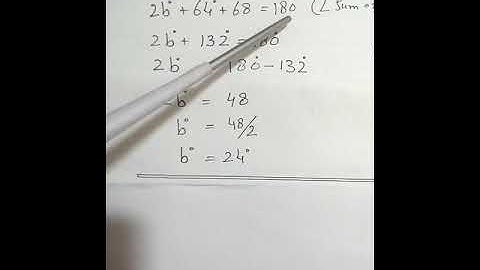 2b° + 64° + 68 = 180 (∠ Sum o
2b° + 132° = 180°
2b° 180° - 132°
b° = 48
b° = 48/2
b° = 24°